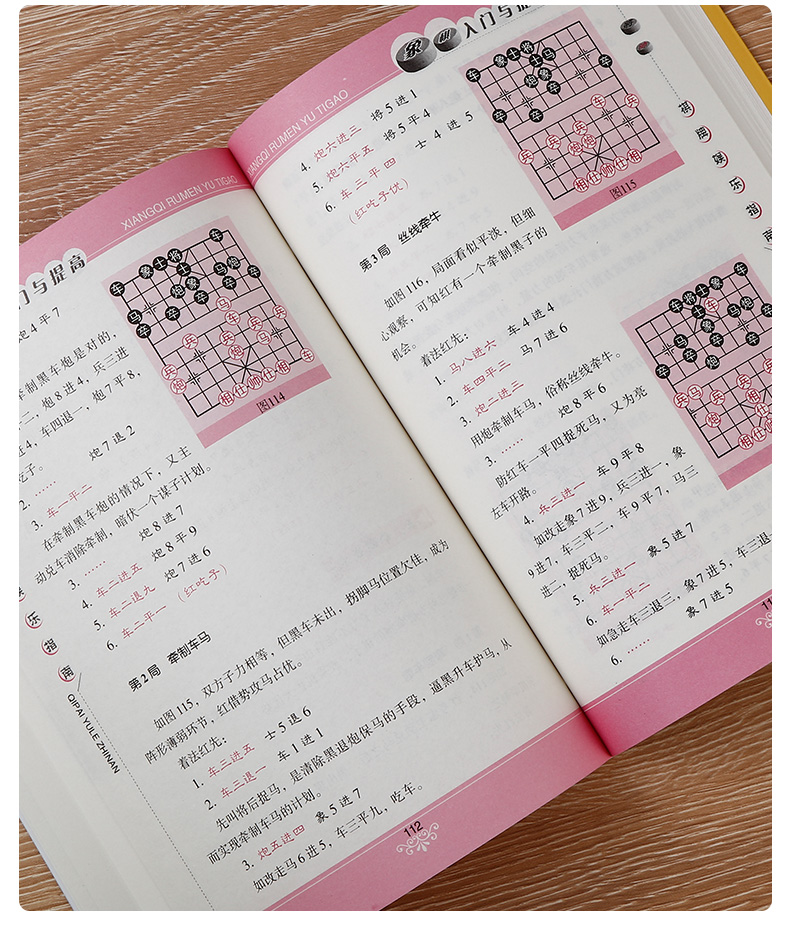 XIANGQI RUMEN YU TIGAO
门与提高
炮4平7
牵制黑车炮是对的,
二,炮8进4,兵三进
进4,车四退一,炮7平8,
吃子。
炮7退2
2. ……
3. 车一平二
在牵制黑车炮的情况下,又主
动兑车消除牵制,暗伏一个谋子计划。
3. …… 炮8进7
4. 车二进五 炮8平9
5. 车二退九 炮7进6
6. 车二平一 (红吃子)
图114
第2局 牵制车马
如图115,双方子力相等,但黑车未出,拐脚马位置欠佳,成为
阵形薄弱环节,红借势攻马占优。
着法红先:
1. 车三进五 士5退6
2. 车三退一 车1进1
先叫将后捉马,是清除黑退炮保马的手段,逼黑升车护马,从
而实现牵制车马的计划。
3. 炮五进四 象5进7
如改走马6进5,车三平九,吃车。
112
乐
指
南
QIPAI YULE ZHINAN
XIANGQI RUMEN YU TIGAO
入门与提
将5进1
4. 炮六进三 将5平4
5. 炮六平五 士4进5
6. 车三平四
(红吃子优)
图115
第3局 丝线牵牛
如图116,局面看似平淡,但细
心观察,可知红有一个牵制黑子的
机会。
着法红先:
1. 马八进六 车4进4
2. 车四平三 马7进6
3. 炮二进三
用炮牵制车马,俗称丝线牵牛。
3. …… 炮8平6
防红车一平四捉死马,又为亮
左车开路。
4. 兵三进一 车9平8
如改走象7进9,兵三进一,象
9进7,车三平二,车9平7,马三
进二,捉死马。
5. 兵三进一 象5进7
6. 车一平二
如急走车三退三,象7进5,车三退
6. …… 象7进5
棋
牌
娱
乐
指
南